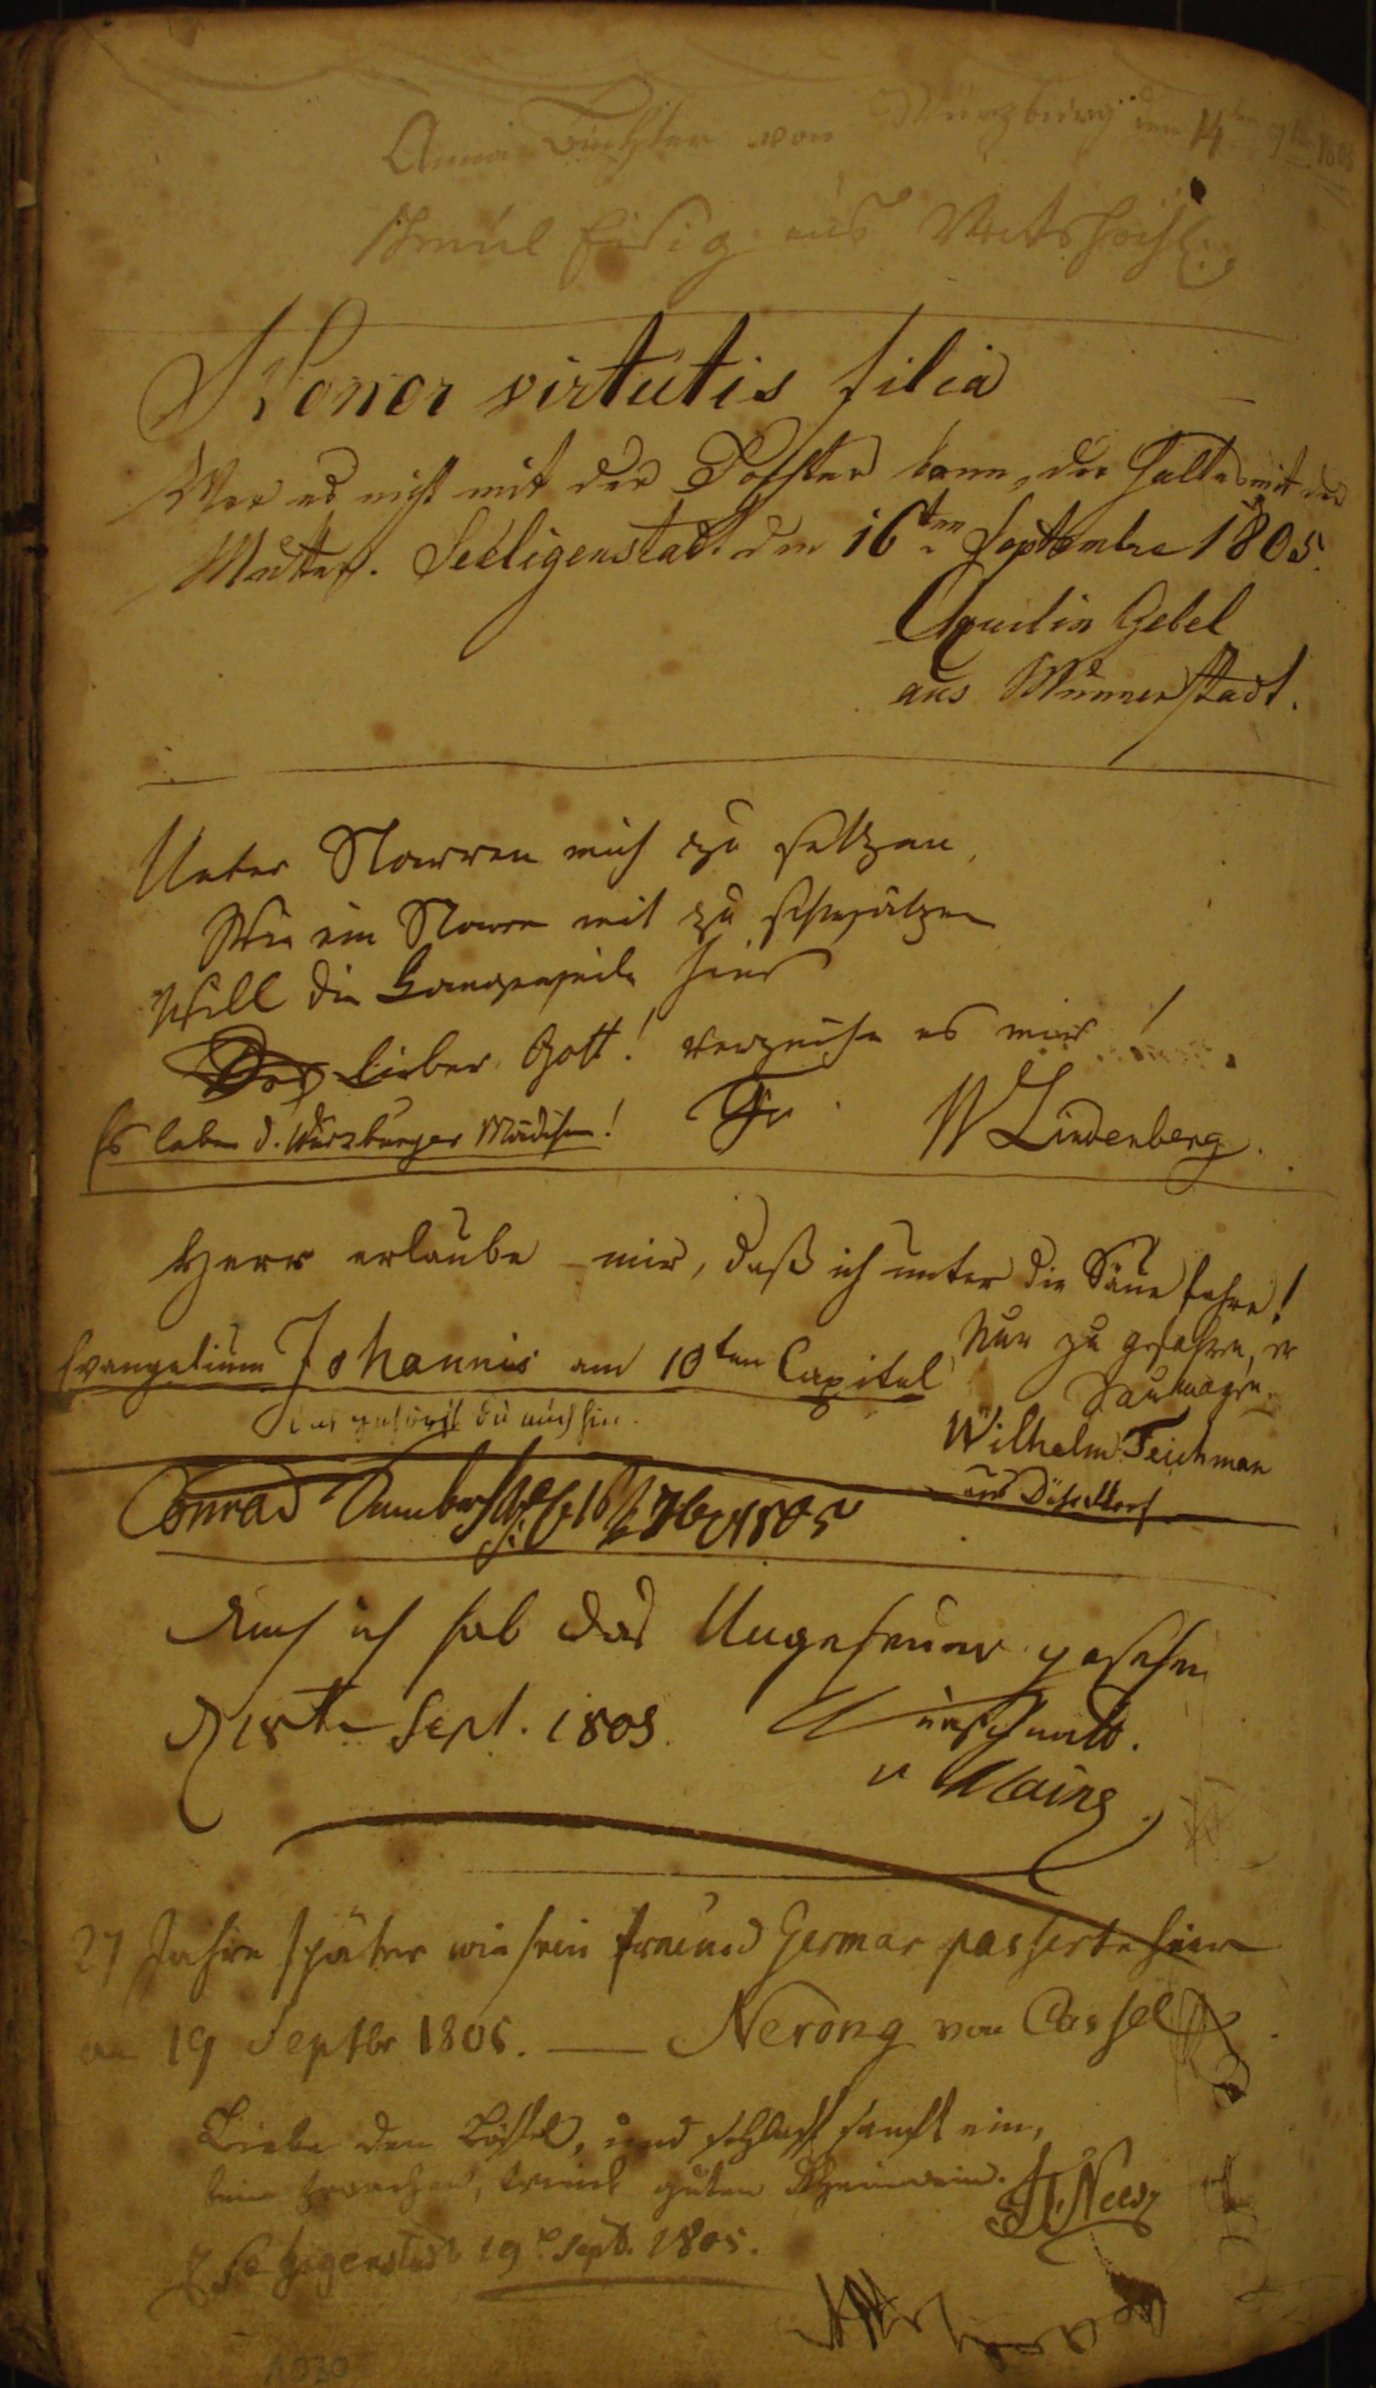 Anna Tochter von Würzburg den 14ten 9br 1805
aus Veitshöch
Honor virtutis filia
Wer es nicht mit der Tochter kann, der halts mit der
Mutter. Seeligenstadt den 16ten Septembre 1805.
Aquilin Gebel
aus Münnerstadt.
Unter Narren mich zu setzen,
Wie ein Narre mit zu schwätzen
Will die Langeweile hier
Doch lieber Gott! verzeihe es mir!
Es leben d. Würzburger Mädchen! Fr W Lindenberg.
Herr erlaube mir, daß ich unter die Säue fahre!
Evangelium Johannis am 10ten Capitel
Nur zu gefahren, er
Saumagen.
Da gehörst du auch hin.
Wilhelm Teichman
aus Düsseldorf
Conrad 1805
Auch ich hab das Ungeheuer gesehen
d 18te Sept. 1805.
v Mainz
27 Jahre später wie sein Freund Germar passierte hier
am 19 Septbr 1805. — Nerong von Cassel
Liebe den Löffel, und schlaf sanft ein,
beim Erwachen, trink guten Rheinwein.
H. Neesz
Selgenstadt 19 Sept. 1805.
1030